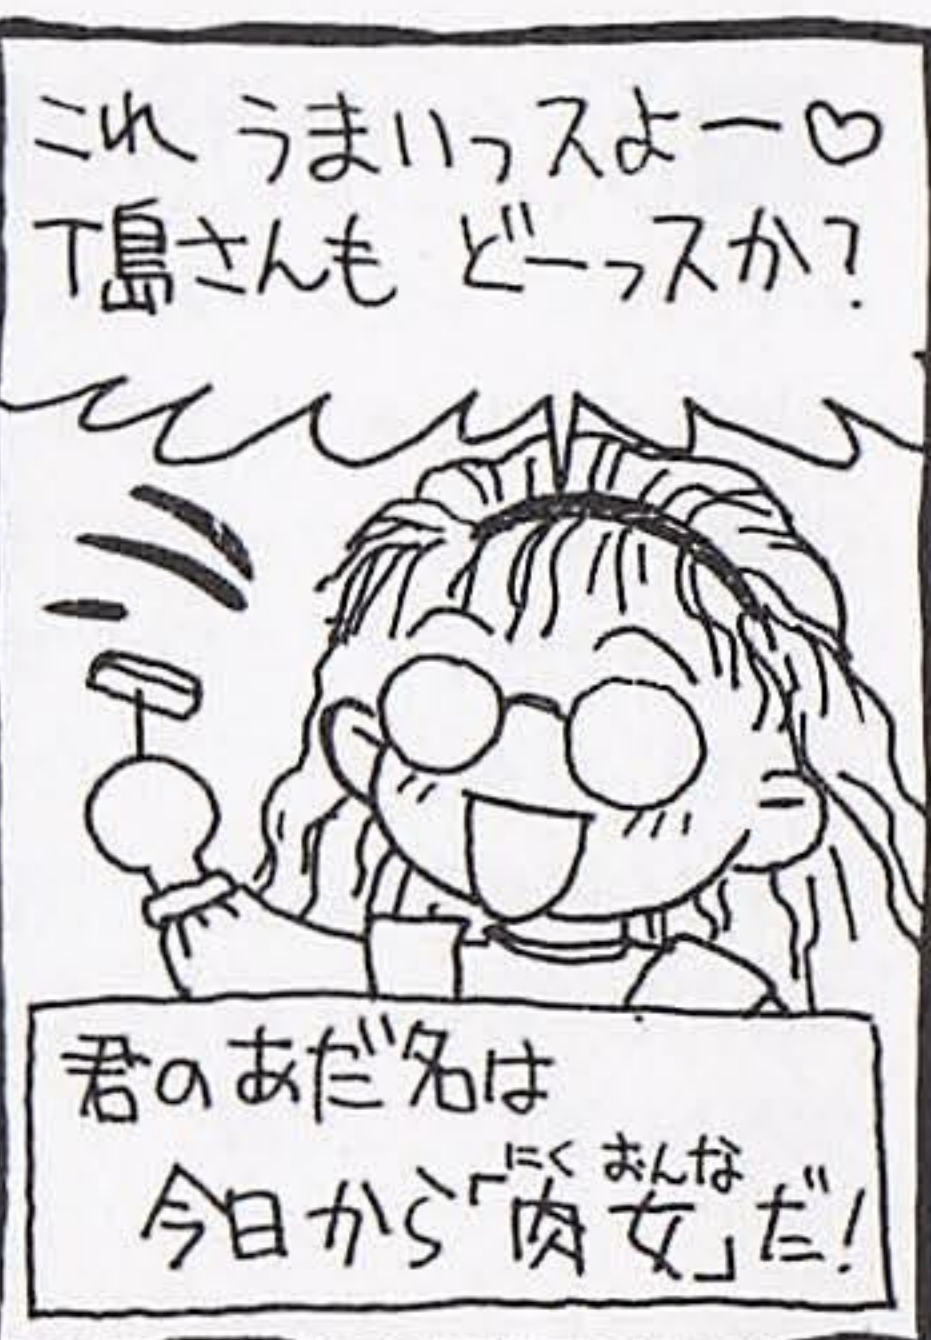 これ うまいっスよー♡
T島さんも どーっスか?
君のあだ名は
今日から「肉女」だ!
にく おんな